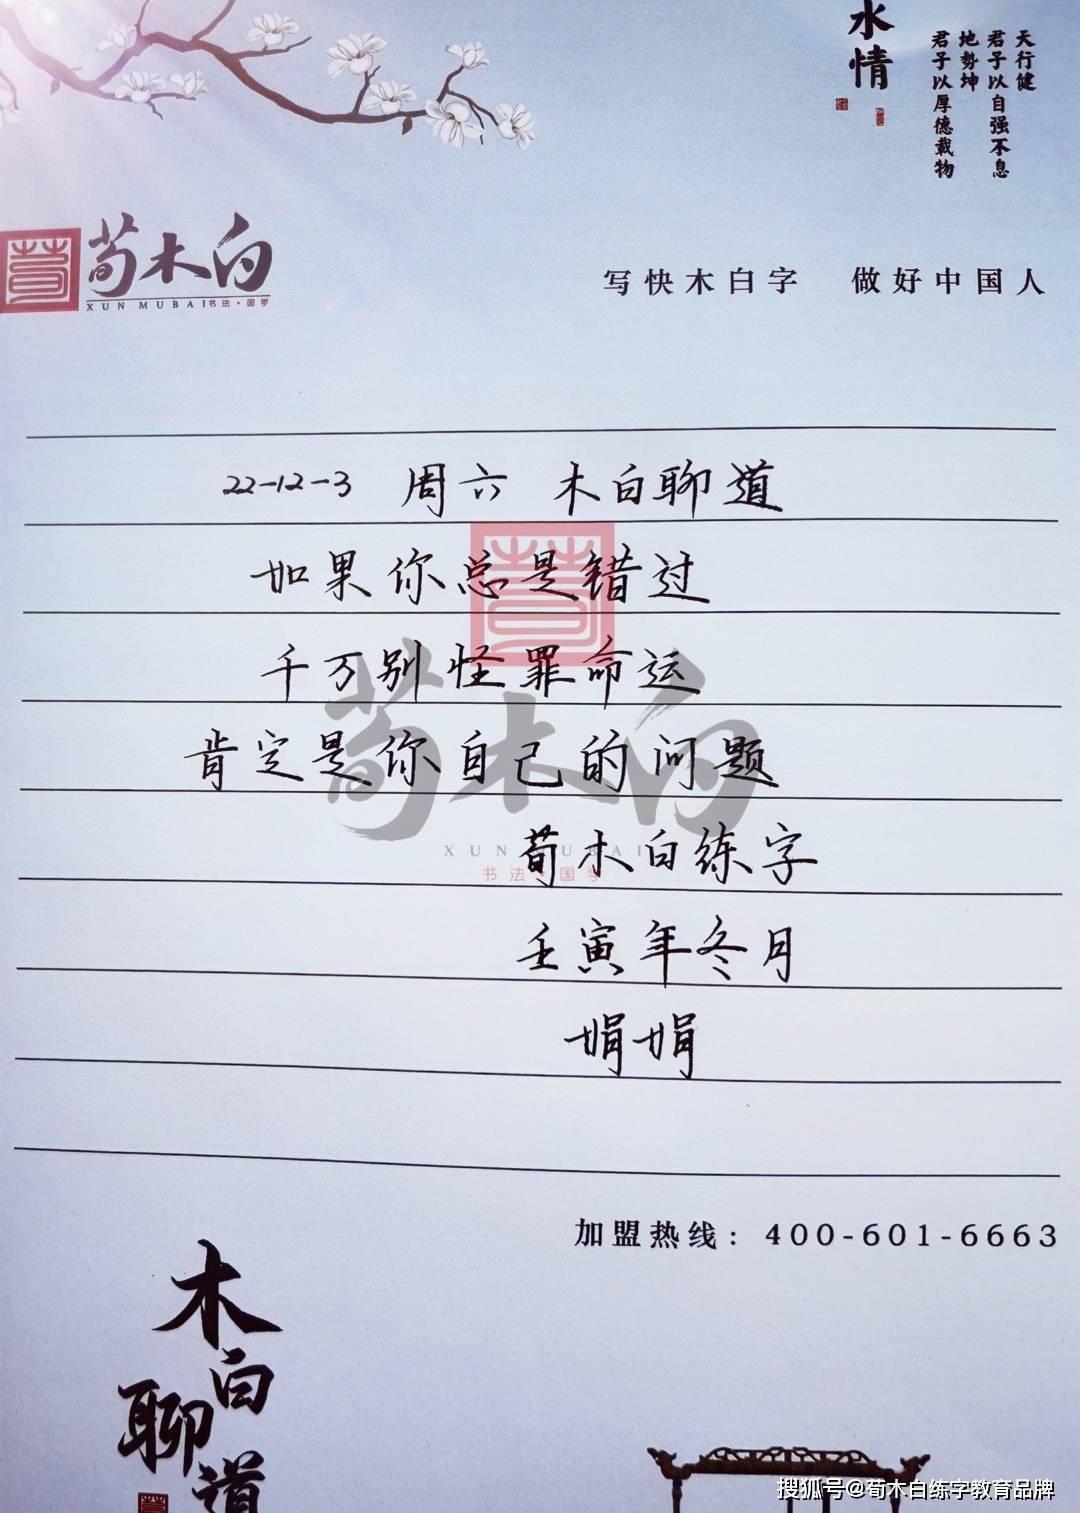 水情
天行健
君子以自强不息
地势坤
君子以厚德载物
荀木白
XUN MUBAI 书法·国学
写快木白字 做好中国人
22-12-3 周六 木白聊道
如果你总是错过
千万别怪罪命运
肯定是你自己的问题
荀木白练字
壬寅年冬月
娟娟
荀木白
XUN MUBAI
书法·国学
加盟热线: 400-601-6663
木白聊道
搜狐号@荀木白练字教育品牌